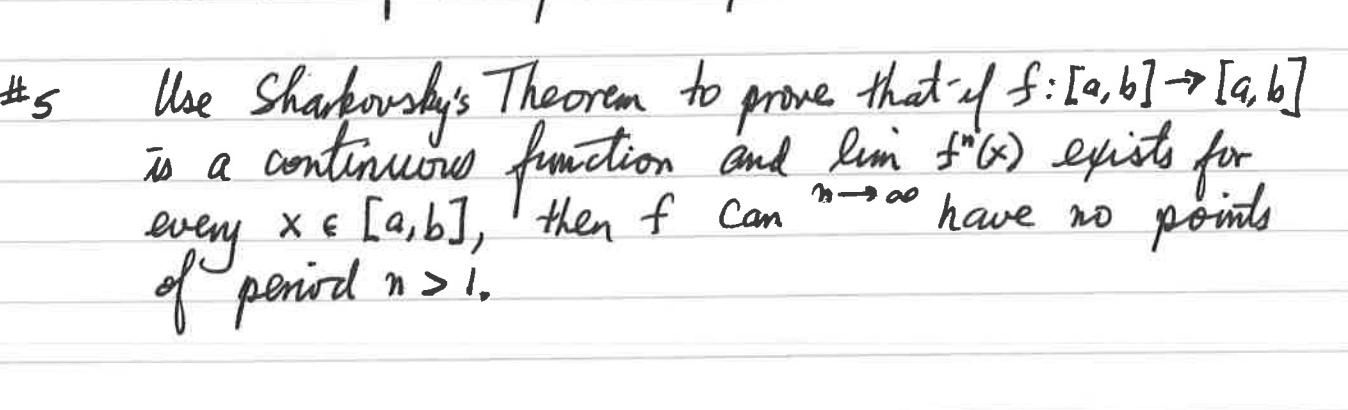 #5 Use Sharkovsky's Theorem to prove that if f: [a, b] → [a, b]
is a continuous function and lim n→∞ fⁿ(x) exists for
every x ∈ [a, b], then f can have no points
of period n > 1.